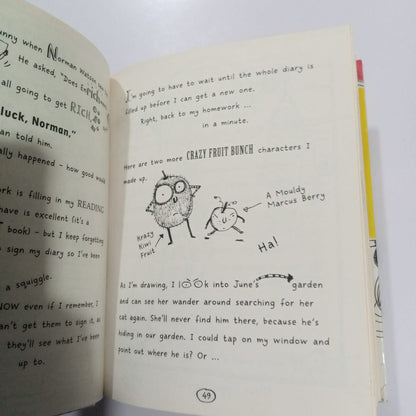 unny when Norman Watson
He asked, "Does
all going to get RICH
luck, Norman,"
an told him.
ally happened - how good would
rk is filling in my READING
have is excellent (it's
book) - but I keep forgetting
o sign my diary so I've been
a squiggle.
NOW even if I remember, I
an't get them to sign it, as
they'll see what I've been
up to.
I'm going to have to wait until the whole diary is
filled up before I can get a new one.
Right, back to my homework ...
in a minute.
Here are two more CRAZY FRUIT BUNCH characters I
made up.
Krazy
Kiwi
Fruit
A Mouldy
Marcus Berry
Ha!
As I'm drawing, I look into June's garden
and can see her wander around searching for her
cat again. She'll never find them there, because he's
hiding in our garden. I could tap on my window and
point out where he is? Or ...
49